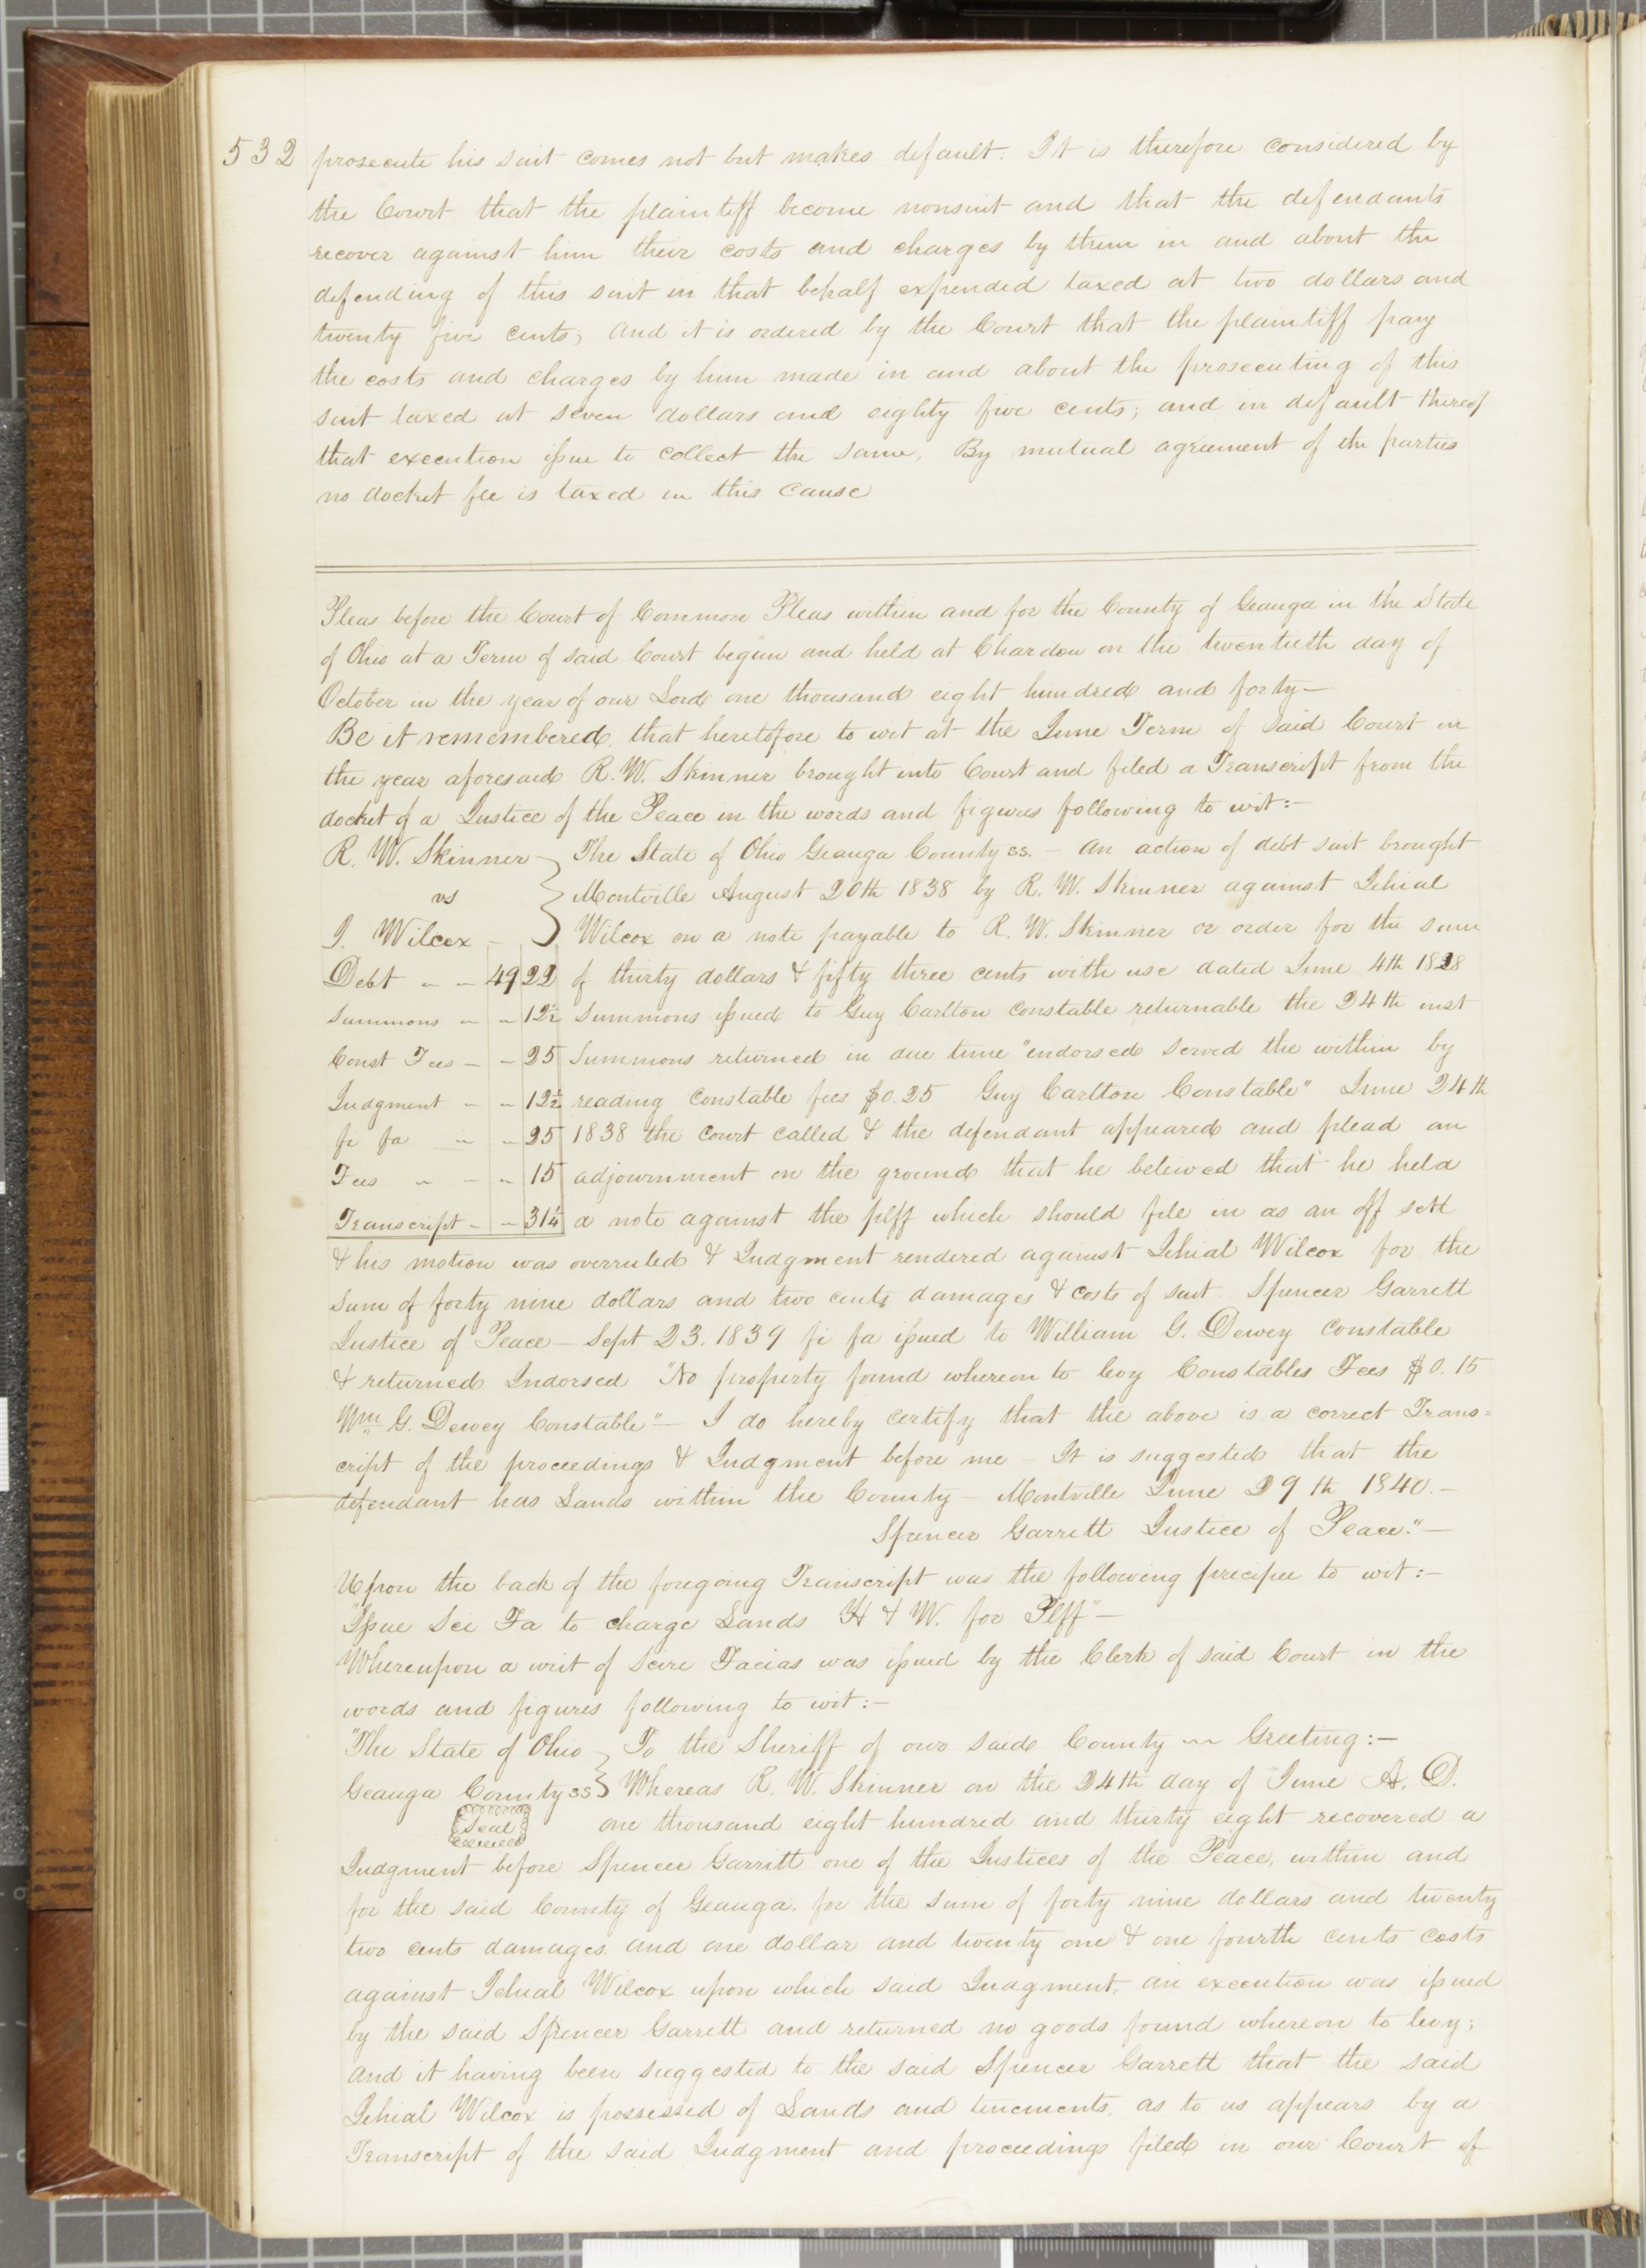 532 prosecute his suit comes not but makes default. It is therefore considered by
the Court that the plaintiff become nonsuit and that the defendants
recover against him their costs and charges by them in and about the
defending of this suit in that behalf expended taxed at two dollars and
twenty five cents; and it is ordered by the Court that the plaintiff pay
the costs and charges by him made in and about the prosecuting of this
suit taxed at seven dollars and eighty five cents; and in default thereof
that execution issue to collect the same. By mutual agreement of the parties
no docket fee is taxed in this cause
Pleas before the Court of Common Pleas within and for the County of Geauga in the State
of Ohio at a Term of said Court begun and held at Chardon on the twentieth day of
October in the year of our Lord one thousand eight hundred and forty—
Be it remembered, that heretofore to wit at the June Term of said Court in
the year aforesaid R. W. Skinner brought into Court and filed a Transcript from the
docket of a Justice of the Peace in the words and figures following to wit:—
R. W. Skinner } The State of Ohio Geauga County ss. — An action of debt suit brought
vs } Montville August 20th 1838 by R. W. Skinner against Jehial
J. Wilcox } Wilcox on a note payable to R. W. Skinner or order for the sum
Debt " — 49 22 of thirty dollars & fifty three cents with use dated June 4th 1828
Summons — " 12½ Summons issued to Guy Carlton constable returnable the 24th inst
Const Fees — — 25 Summons returned in due time "endorsed served the within by
Judgment — — 12½ reading constable fees $0.25 Guy Carlton Constable" June 24th
fi fa — " 25 1838 the court called & the defendant appeared and plead an
Fees " — " 15 adjournment on the ground that he beleived that he held
Transcript — — 31¼ a note against the plff which should file in as an off sett
& his motion was overruled & Judgment rendered against Jehial Wilcox for the
sum of forty nine dollars and two cents damages & costs of suit. Spencer Garrett
Justice of Peace — Sept 23. 1839 fi fa issued to William G. Dewey constable
& returned Indorsed "No property found whereon to levy Constables Fees $0.15
Wm G. Dewey Constable" — I do hereby certify that the above is a correct Trans=
cript of the proceedings & Judgment before me — It is suggested that the
defendant has Lands within the County — Montville June 29th 1840. —
Spencer Garrett Justice of Peace." —
Upon the back of the foregoing Transcript was the following precipee to wit:—
"Issue Sci Fa to charge Lands H & W. for Plff" —
Whereupon a writ of Scire Facias was issued by the Clerk of said Court in the
words and figures following to wit:—
"The State of Ohio } To the Sheriff of our said County — Greeting:—
Geauga County ss } Whereas R. W. Skinner on the 24th day of June A. D.
Seal one thousand eight hundred and thirty eight recovered a
Judgment before Spencer Garritt one of the Justices of the Peace, within and
for the said County of Geauga, for the sum of forty nine dollars and twenty
two cents damages, and one dollar and twenty one & one fourth cents costs
against Jehial Wilcox upon which said Judgment, an execution was issued
by the said Spencer Garrett and returned no goods found whereon to levy;
and it having been suggested to the said Spencer Garrett that the said
Jehial Wilcox is possessed of Lands and tenements, as to us appears by a
Transcript of the said Judgment and proceedings filed in our Court of